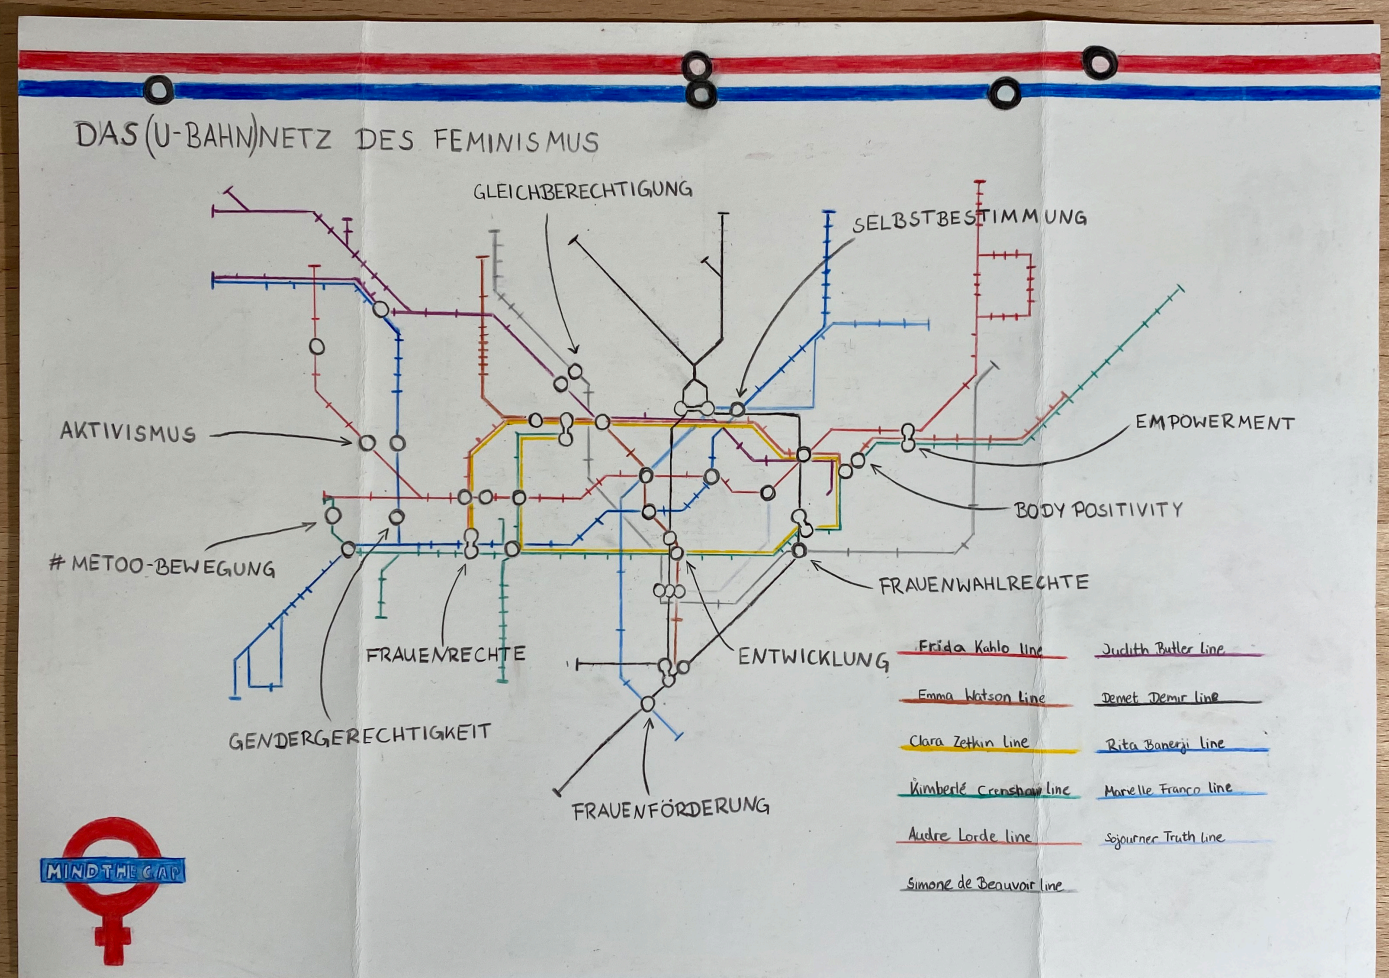 DAS (U-BAHN)NETZ DES FEMINISMUS
GLEICHBERECHTIGUNG
SELBSTBESTIMMUNG
AKTIVISMUS
EMPOWERMENT
BODY POSITIVITY
#METOO-BEWEGUNG
FRAUENWAHLRECHTE
FRAUENRECHTE
ENTWICKLUNG
GENDERGERECHTIGKEIT
FRAUENFÖRDERUNG
Frida Kahlo line
Emma Watson line
Clara Zetkin line
Kimberlé Crenshaw line
Audre Lorde line
Simone de Beauvoir line
Judith Butler line
Demet Demir line
Rita Banerji line
Marielle Franco line
Sojourner Truth line
MIND THE GAP